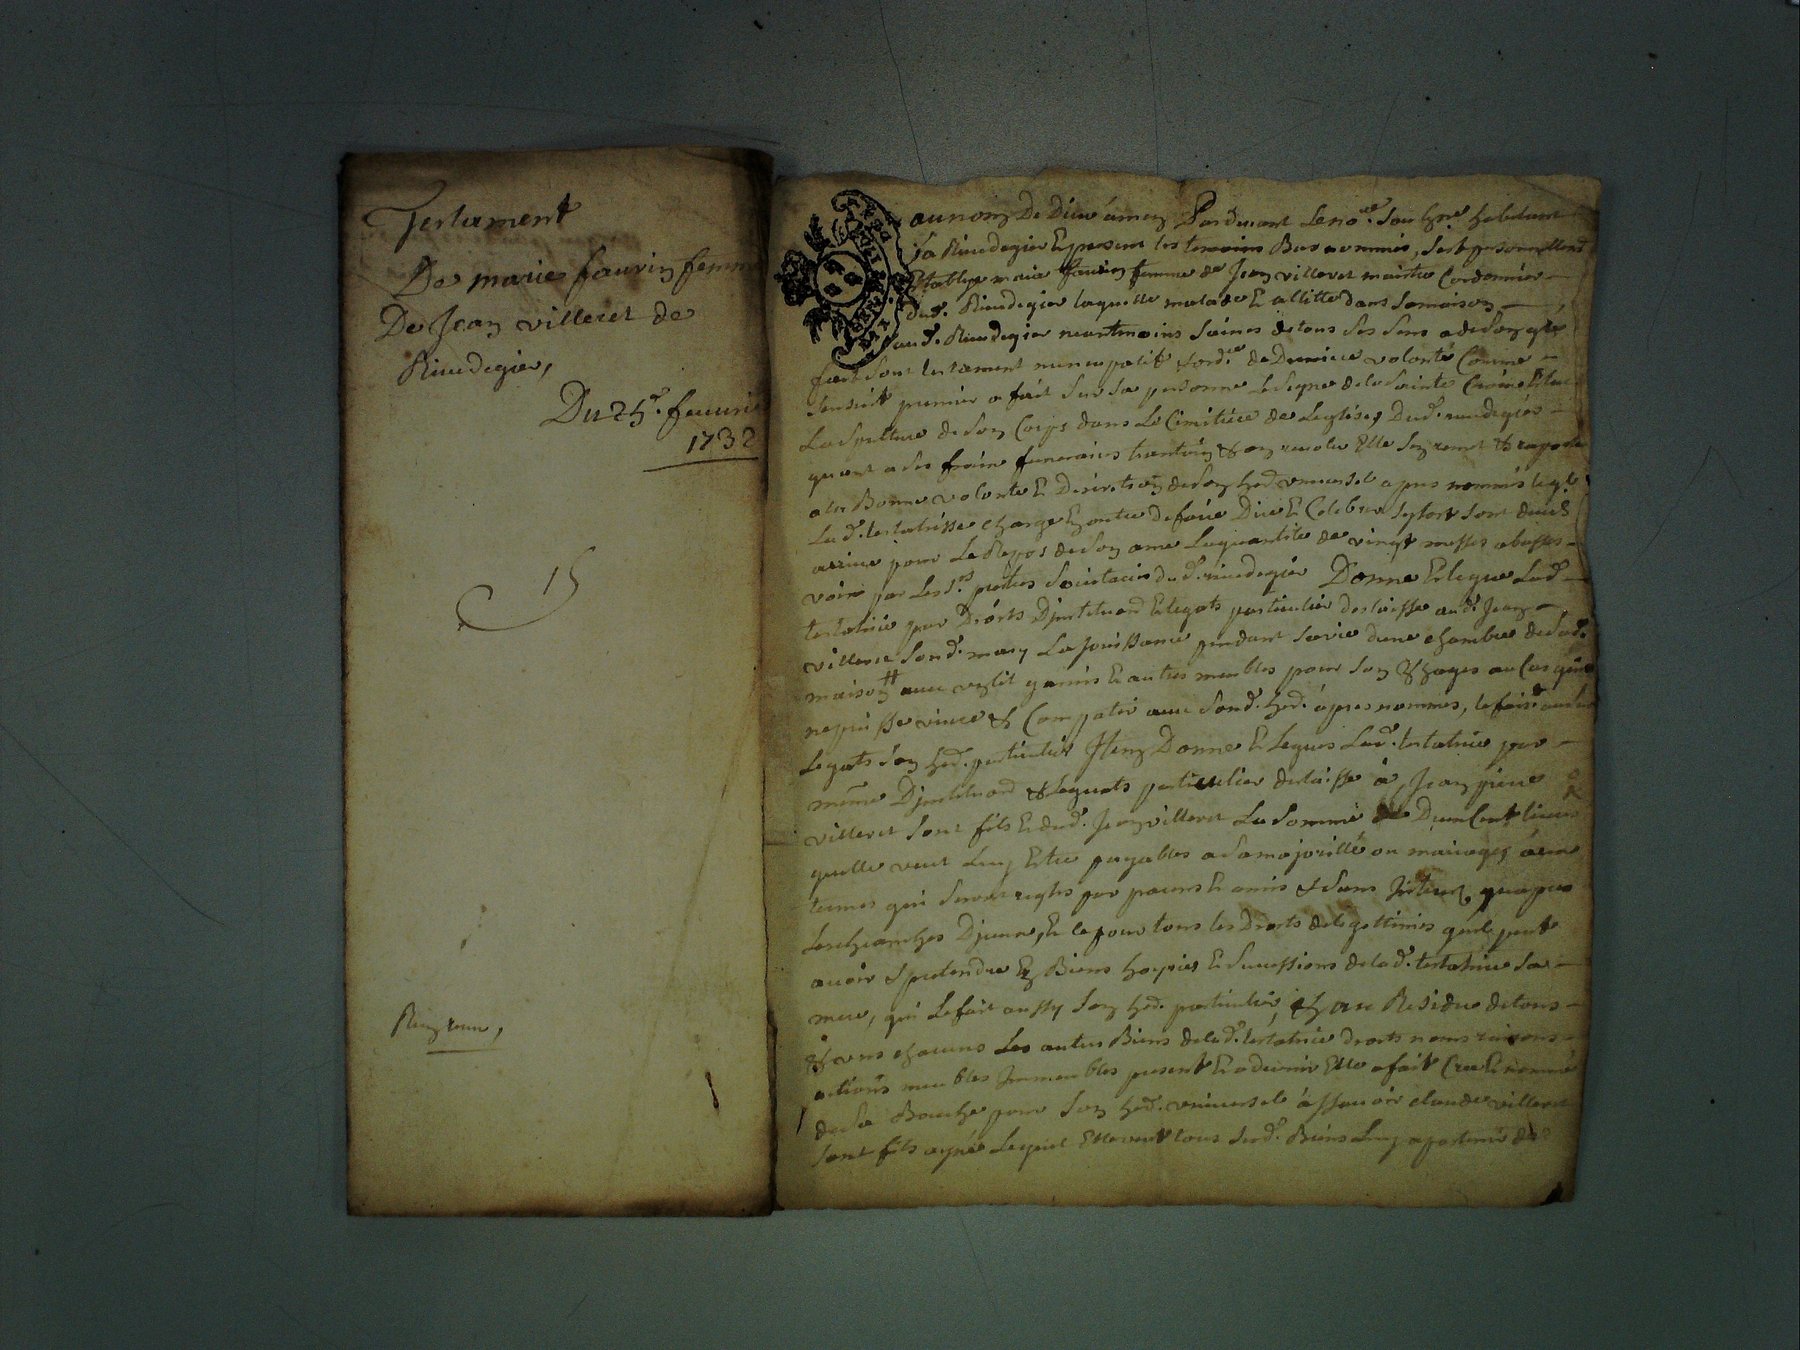 Testament
De marie faurin femme
De Jean villeret de
Riudegier,
Du 25e. feuurier
1732
15
au nom De Dieu amen Pardeuant Le nore. soubzne. habitant
a Riudegier Et presens les temoins Bas nommés, sest personnellemt
Etablye marie faurin femme de Jean villeret maistre Cordonnier
dud. Riudegier laquelle malade Et allitte dans sa maison
aud. Riudegier neantmoins saines de tous ses sens a de son gré
fait son testament nuncupatif & ordre de Derniere volonté Comme
sensuit premier a fait sur sa personne Le signe de la sainte Croix
La sepulture de son Corps dans Le Cimitiere de Leglise Dud. riudegier
quant a ses frais funeraires Elle sen remet & raporte
a la Bonne volonté Et Discretion de son hed. vniuersel apres nommé
Lad. testatrisse charge Et outre de faire Dire Et Celebrer
pour Le Repos de son ame La quantité de vingt messes abasses
voix par Les srs. pretres societaires dud. riudegier Donne Et legue Lad.
testatrice par Droits D'institution Et legats particulier delaisse aud. Jean
villeret sond. mary La jouissance pendant sa vie dune chambre de sad.
maison auec vn lit garni Et autres meubles pour son Vsages au Cas quil
ne puisse viure & Compatir auec sond. hed. apres nommes, le faist
Legats son hed. particulier Item Donne Et Legues Lad. testatrice par
mesme D'institution & Leguats particulier delaisse à Jean pierre
villeret sont fils Et dud. Jean villeret La somme De D'un Cent liures
quelle veut Luy Estre payables a sa majoritté ou mariages
termes qui seront regles par parens Et amis & sans Interest
Et ce pour tous les Droits de legittimes quil peut
auoir & pretendre En Biens hoyries Et successions de lad. testatrice sa
mere, qui Le fait aussy son hed. particulier, Et au Residue de tous
& vns chacuns Les autres Biens de lad. testatrice droits noms raisons
actions meubles Immeubles present Et aduenir Elle a fait Cree Et nommé
de sa Bouche pour son hed. vniuersele a sçauoir claude villeret
sont fils ayné Lequel Elle veut tous sesd. Biens Luy apartenir